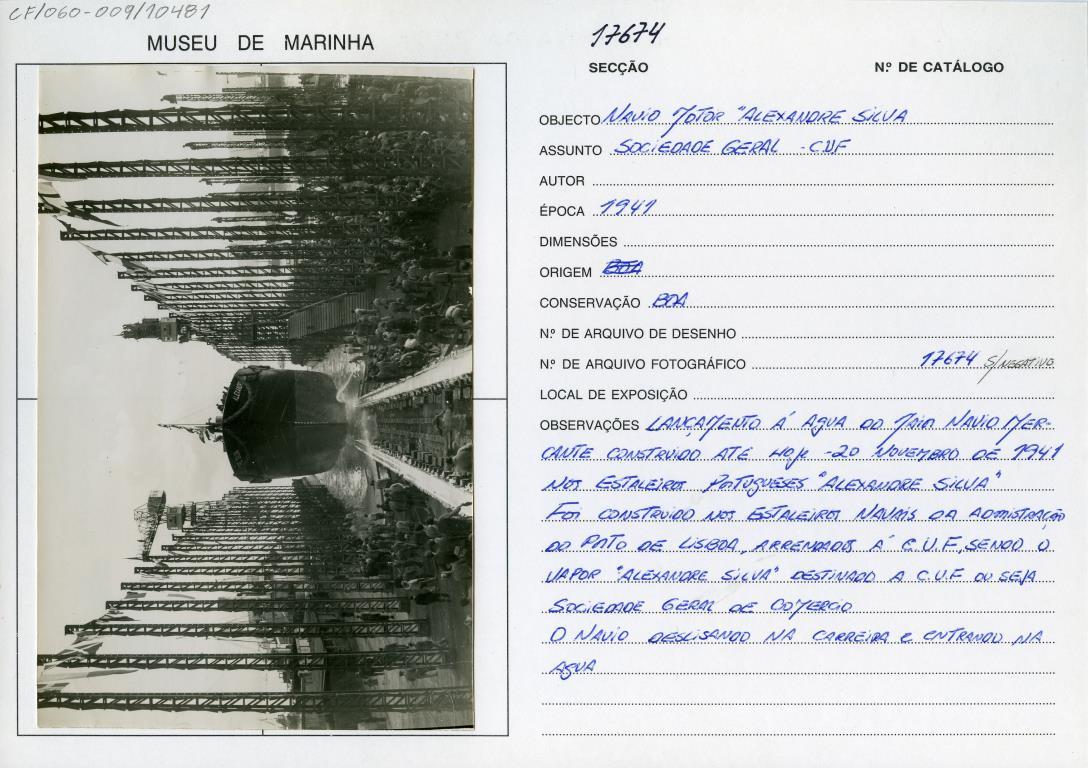 CF/060-009/10481
MUSEU DE MARINHA
17674
SECÇÃO
N.º DE CATÁLOGO
OBJECTO NAVIO MOTOR "ALEXANDRE SILVA
ASSUNTO SOCIEDADE GERAL - CUF
AUTOR
ÉPOCA 1941
DIMENSÕES
ORIGEM
CONSERVAÇÃO BOA
N.º DE ARQUIVO DE DESENHO
N.º DE ARQUIVO FOTOGRÁFICO 17674 S/NEGATIVO
LOCAL DE EXPOSIÇÃO
OBSERVAÇÕES LANÇAMENTO Á AGUA DO MAIOR NAVIO MER-
CANTE CONSTRUIDO ATÉ HOJE - 20 NOVEMBRO DE 1941
NOS ESTALEIROS PORTUGUESES "ALEXANDRE SILVA"
FOI CONSTRUIDO NOS ESTALEIROS NAVAIS DA ADMISTRAÇÃO
DO PORTO DE LISBOA, ARRENDADOS Á C.U.F., SENDO O
VAPOR "ALEXANDRE SILVA" DESTINADO A C.U.F. OU SEJA
SOCIEDADE GERAL DE COMERCIO
O NAVIO DESLISANDO NA CARREIRA E ENTRANDO NA
AGUA